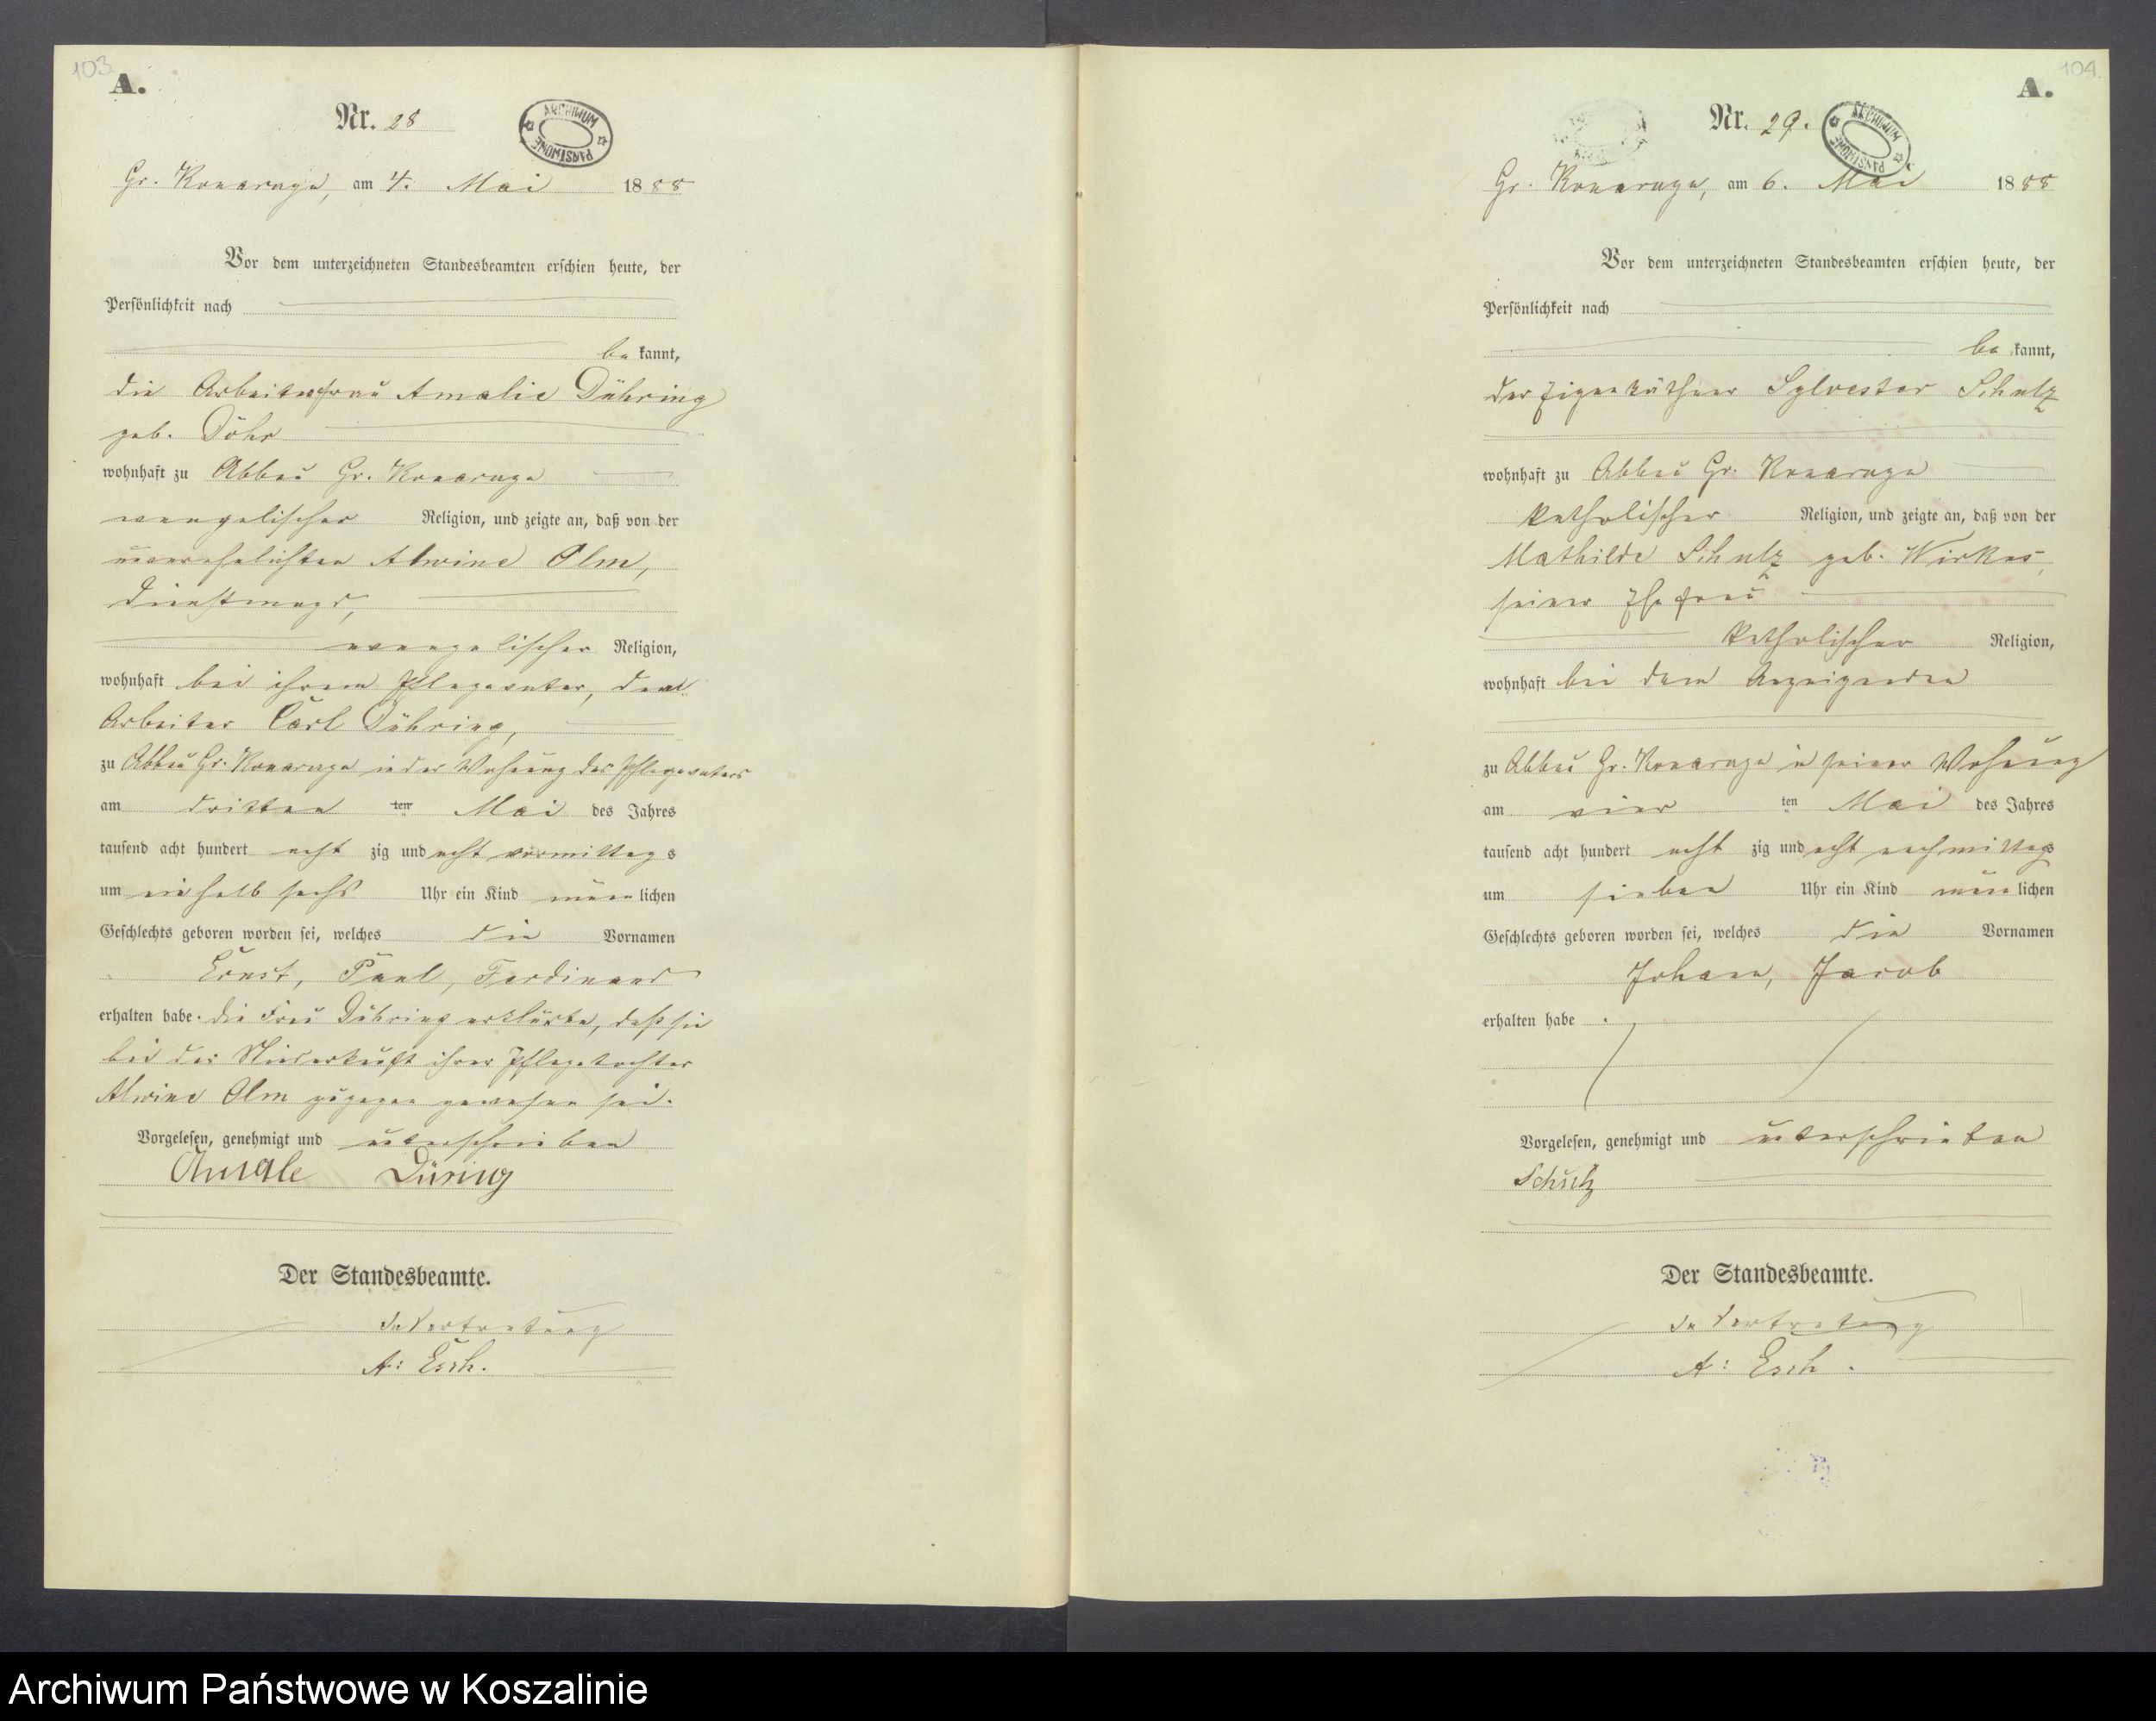 103.
A.
Nr. 28
ARCHIWUM
PAŃSTWOWE
Gr. Konarczyn, am 4. Mai 1888
Vor dem unterzeichneten Standesbeamten erschien heute, der
Persönlichkeit nach
be kannt,
die Arbeiterfrau Amalie Dühring
geb. Döhr
wohnhaft zu Abbau Gr. Konarczyn
evangelischer Religion, und zeigte an, daß von der
unverehelichten Alwine Olm,
Dienstmagd,
evangelischer Religion,
wohnhaft bei ihrem Pflegevater, dem
Arbeiter Carl Dühring,
zu Abbau Gr. Konarczyn in der Wohnung des Pflegevaters
am dritten ten Mai des Jahres
tausend acht hundert acht zig und acht vormittag s
um ein halb sechs Uhr ein Kind männ lichen
Geschlechts geboren worden sei, welches die Vornamen
Ernst, Paul, Ferdinand
erhalten habe. die Frau Dühring erklärte, daß sie
bei der Niederkunft ihrer Pflegetochter
Alwine Olm zugegen gewesen sei.
Vorgelesen, genehmigt und unterschrieben
Amale Düring
Der Standesbeamte.
In Vertretung
A: Esch.
104.
A.
Nr. 29.
ARCHIWUM
PAŃSTWOWE
Gr. Konarczyn, am 6. Mai 1888
Vor dem unterzeichneten Standesbeamten erschien heute, der
Persönlichkeit nach
be kannt,
der Eigenkäthner Sylvester Schulz
wohnhaft zu Abbau Gr. Konarczyn
katholischer Religion, und zeigte an, daß von der
Mathilde Schulz geb. Wirkus,
seiner Ehefrau
katholischer Religion,
wohnhaft bei dem Anzeigenden
zu Abbau Gr. Konarczyn in seiner Wohnung
am vier ten Mai des Jahres
tausend acht hundert acht zig und acht nachmittags
um sieben Uhr ein Kind männ lichen
Geschlechts geboren worden sei, welches die Vornamen
Johann, Jacob
erhalten habe .
Vorgelesen, genehmigt und unterschrieben
Schulz
Der Standesbeamte.
In Vertretung
A: Esch.
Archiwum Państwowe w Koszalinie